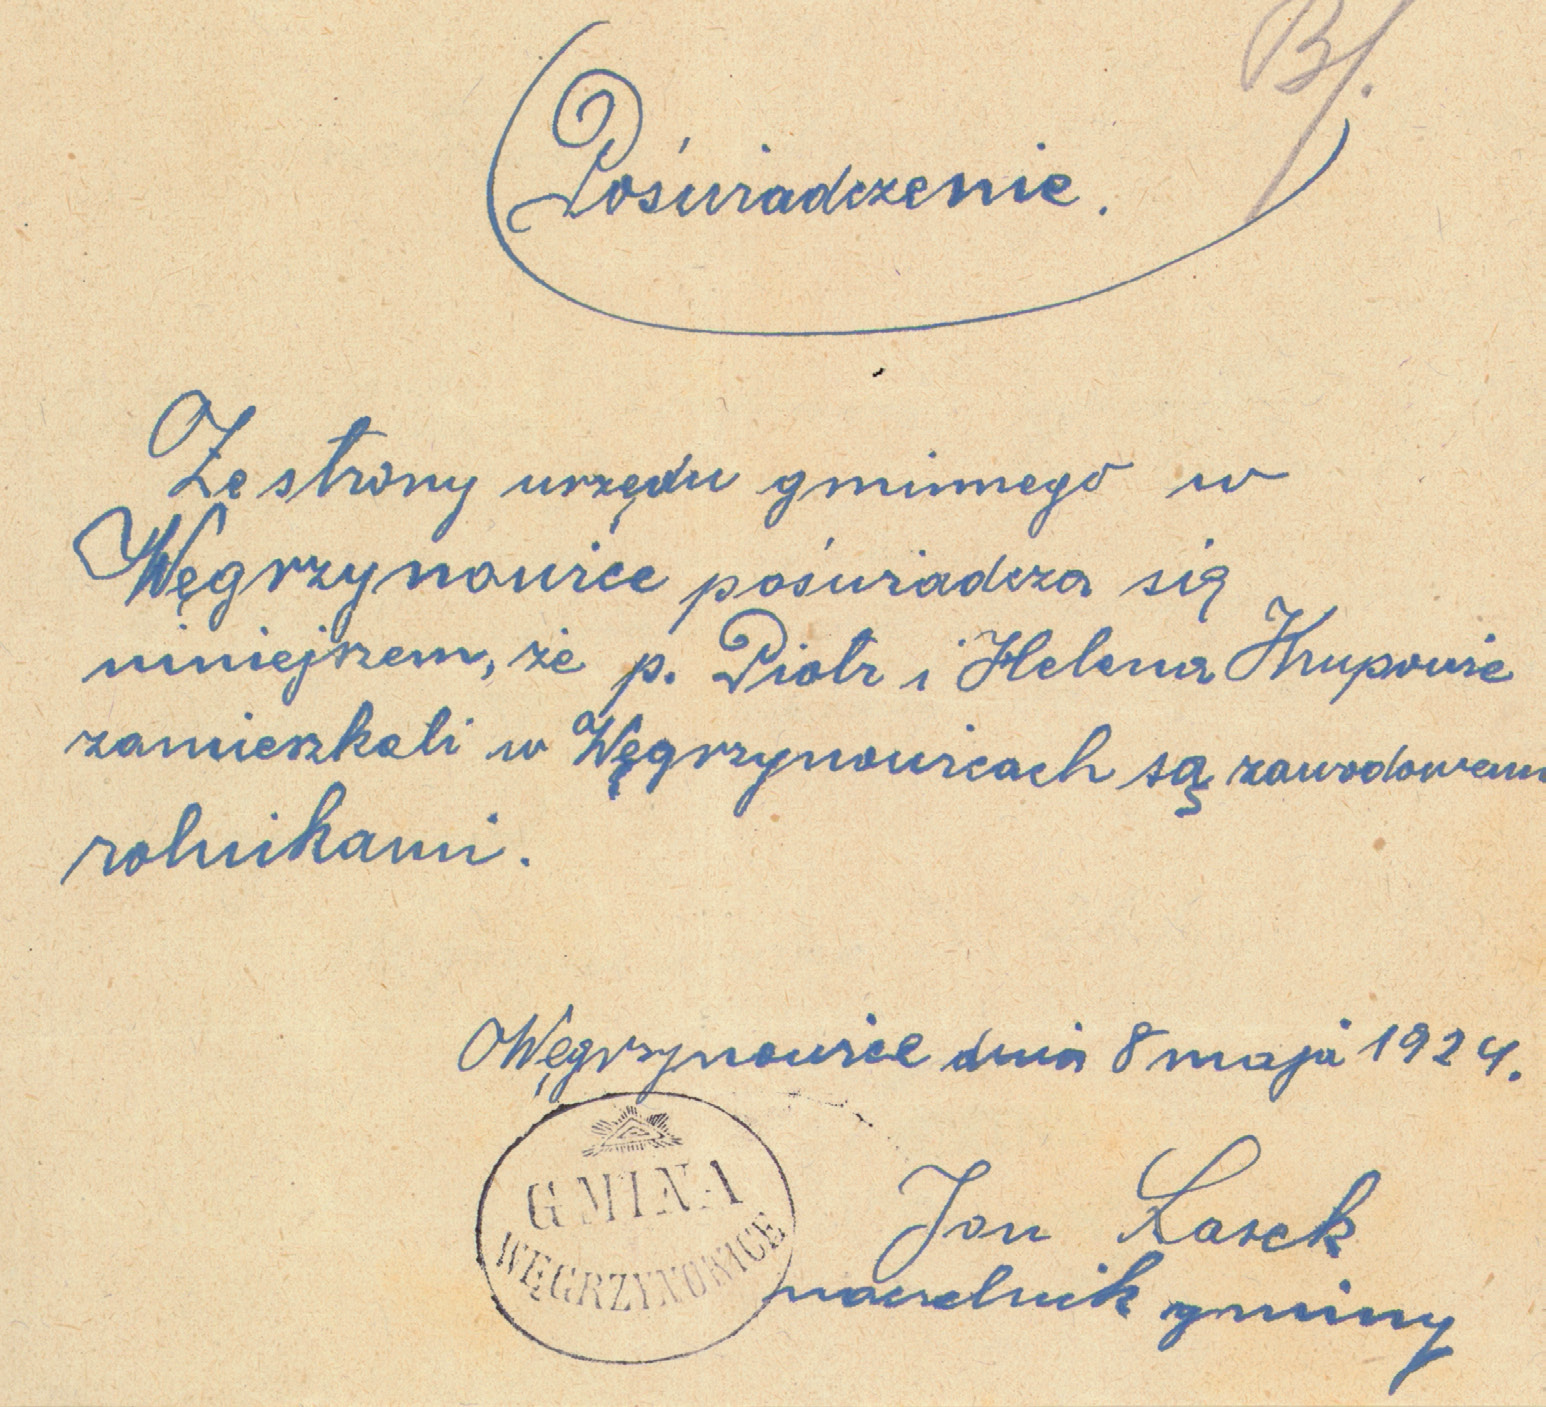 B/.
Poświadczenie.
Ze strony urzędu gminnego w
Węgrzynowice poświadcza się
niniejszem, że p. Piotr i Helena Krupowie
zamieszkali w Węgrzynowicach są zawodowemi
rolnikami.
Węgrzynowice dnia 8 maja 1924.
GMINA
WĘGRZYNOWICE
Jan Łasek
naczelnik gminy